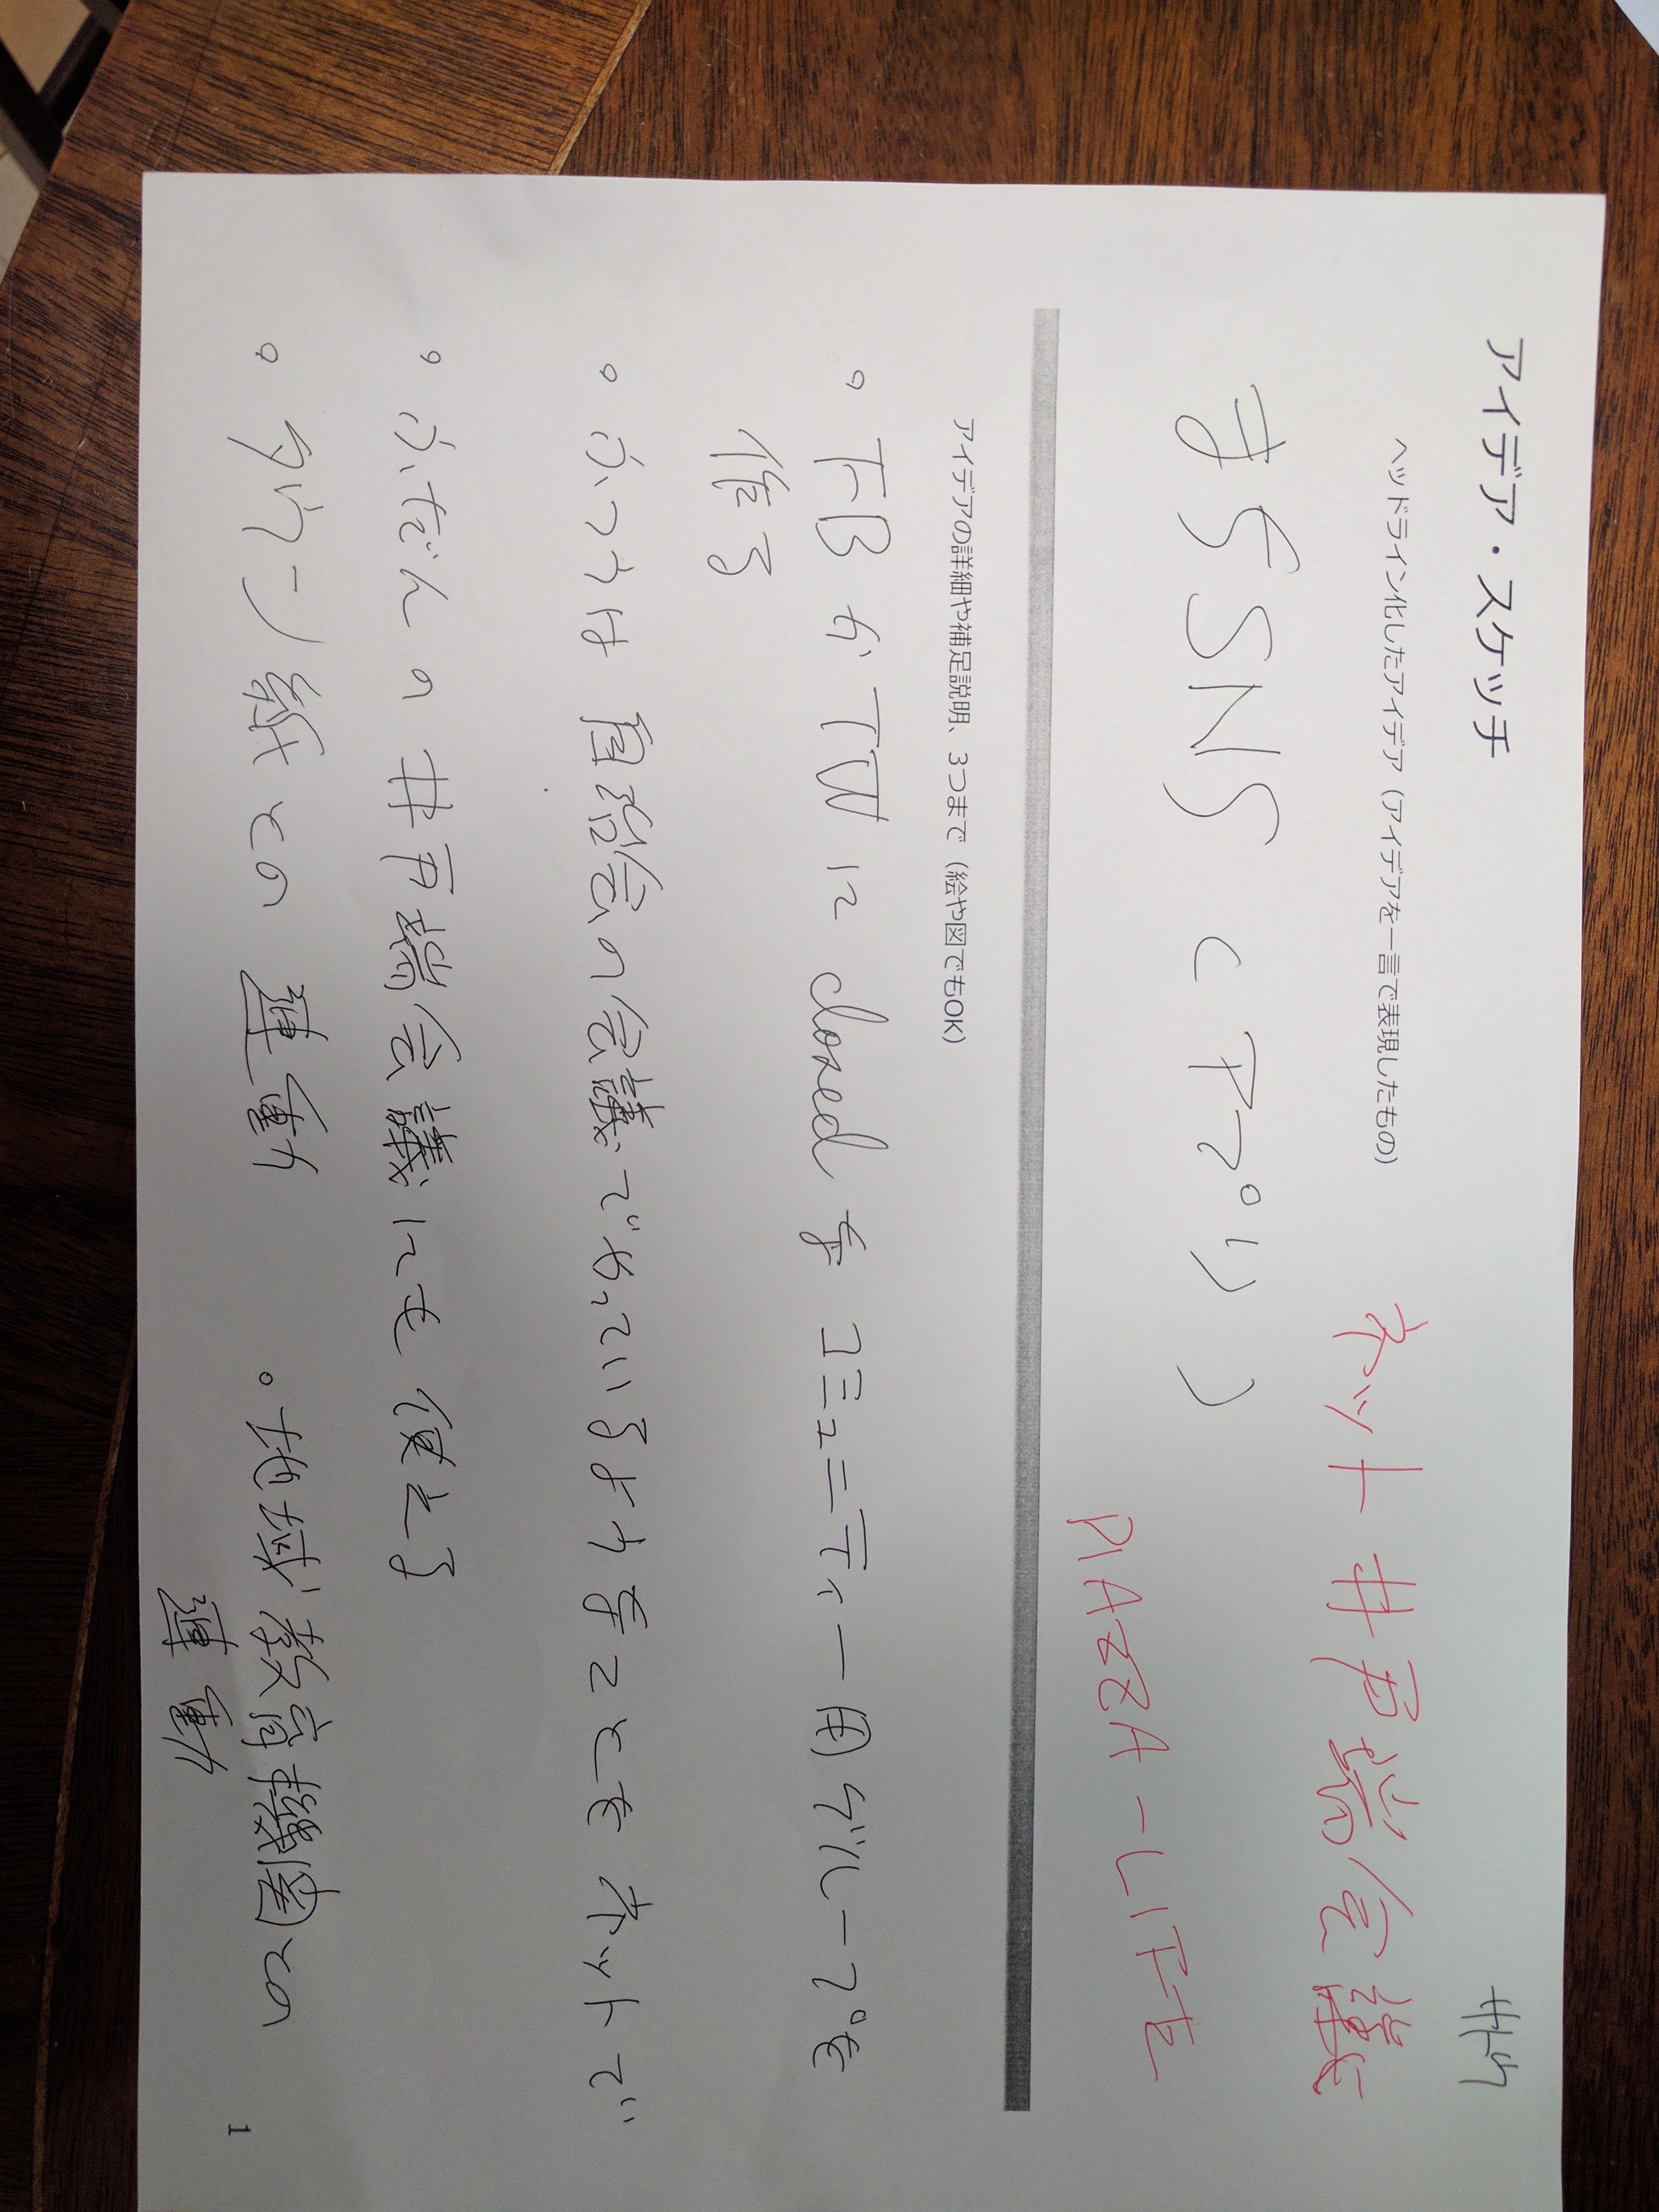 アイデア・スケッチ
ヘッドライン化したアイデア（アイデアを一言で表現したもの)
ネット井戸端会議
まちSNS（アプリ）
PIAZZA-LIFE
アイデアの詳細や補足説明、3つまで（絵や図でもOK）
。FBかTWにclosedなコミュニティー用グループを
作る
。ふつうは自治会の会議でやっているようなことをネットで
。ふだんの井戸端会議にも使える
。タウン紙との連動 。地域教育機関との
連動
1